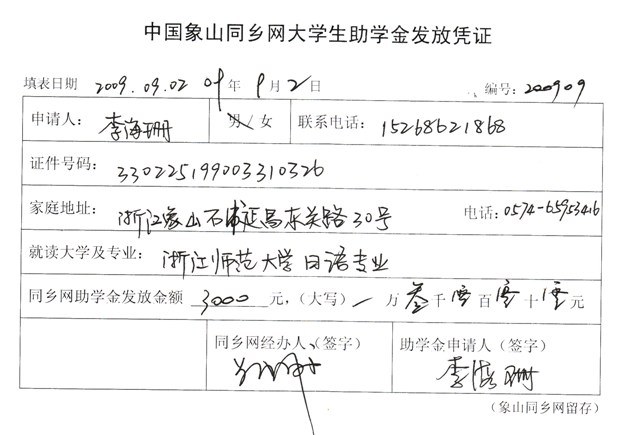 中国象山同乡网大学生助学金发放凭证
填表日期 2009.09.02 09年9月2日 编号：200909
申请人： 李海珊 男/女 联系电话： 15268621868
证件号码： 330225199003310326
家庭地址： 浙江象山石浦延昌东关路30号 电话：0574-65953416
就读大学及专业： 浙江师范大学 日语专业
同乡网助学金发放金额 3000 元，（大写）/ 万 叁 千 零 百 零 十 零 元
同乡网经办人（签字） 助学金申请人（签字）
李海珊
（象山同乡网留存）